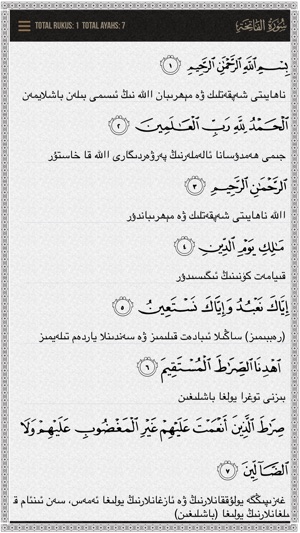 TOTAL RUKUS: 1 TOTAL AYAHS: 7 سُورَةُ الفَاتِحَةِ
بِسْمِ اللَّهِ الرَّحْمَٰنِ الرَّحِيمِ ١
ناھايىتى شەپقەتلىك ۋە مېھرىبان االله نىڭ ئىسمى بىلەن باشلايمەن
الْحَمْدُ لِلَّهِ رَبِّ الْعَالَمِينَ ٢
جىمى ھەمدۇسانا ئالەملەرنىڭ پەرۋەردىگارى االله قا خاستۇر
الرَّحْمَٰنِ الرَّحِيمِ ٣
االله ناھايىتى شەپقەتلىك ۋە مېھرىباندۇر
مَالِكِ يَوْمِ الدِّينِ ٤
قىيامەت كۈنىنىڭ ئىگىسىدۇر
إِيَّاكَ نَعْبُدُ وَإِيَّاكَ نَسْتَعِينُ ٥
(رەببىمىز) ساڭىلا ئىبادەت قىلىمىز ۋە سەندىنلا ياردەم تىلەيمىز
اهْدِنَا الصِّرَاطَ الْمُسْتَقِيمَ ٦
بىزنى توغرا يولغا باشلىغىن
صِرَاطَ الَّذِينَ أَنْعَمْتَ عَلَيْهِمْ غَيْرِ الْمَغْضُوبِ عَلَيْهِمْ وَلَا
الضَّالِّينَ ٧
غەزىپىڭگە يولۇققانلارنىڭ ۋە ئازغانلارنىڭ يولىغا ئەمەس، سەن ئىنئام ق
ىلغانلارنىڭ يولىغا (باشلىغىن)